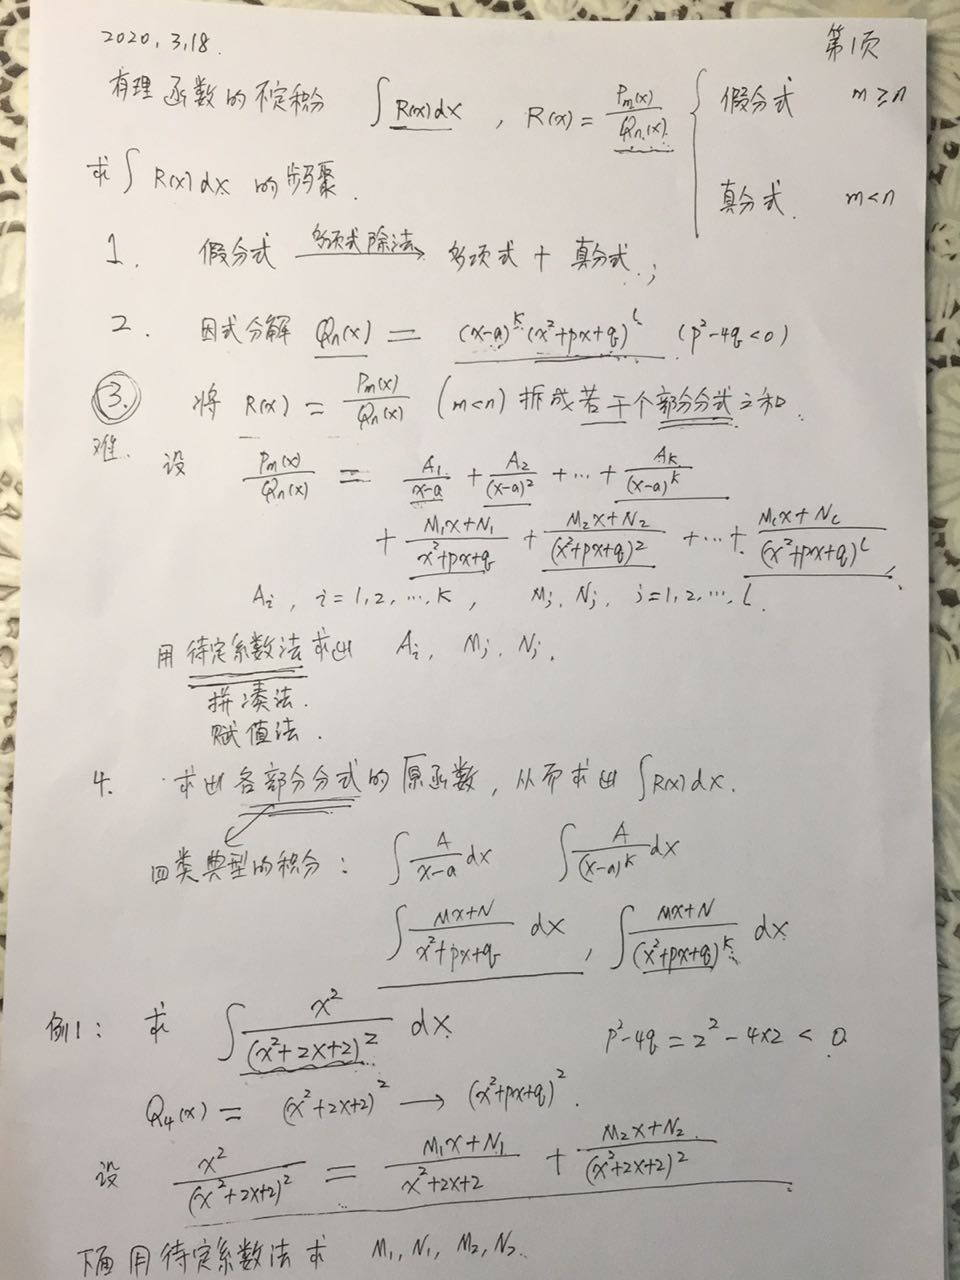 2020.3.18. 第1页
有理函数的不定积分 ∫R(x)dx , R(x) = Pm(x)/Qn(x) { 假分式 m≥n
求∫R(x)dx 的步骤. 真分式. m<n
1. 假分式 —多项式除法→ 多项式 + 真分式.;
2. 因式分解 Qn(x) = (x-a)^k (x²+px+q)^l (p²-4q<0)
③. 将 R(x) = Pm(x)/Qn(x) (m<n) 拆成若干个部分分式之和.
难. 设 Pm(x)/Qn(x) = A₁/(x-a) + A₂/(x-a)² + ⋯ + A_k/(x-a)^k
+ (M₁x+N₁)/(x²+px+q) + (M₂x+N₂)/(x²+px+q)² + ⋯ + (M_l x+N_l)/(x²+px+q)^l.
A_i, i=1,2,⋯,k, M_j, N_j, j=1,2,⋯,l.
用待定系数法求出 A_i, M_j, N_j.
拼凑法.
赋值法.
4. 求出各部分分式的原函数, 从而求出∫R(x)dx.
四类典型的积分: ∫A/(x-a) dx ∫A/(x-a)^k dx
∫(Mx+N)/(x²+px+q) dx , ∫(Mx+N)/(x²+px+q)^k dx
例1: 求 ∫x²/(x²+2x+2)² dx p²-4q = 2²-4×2 < 0
Q₄(x) = (x²+2x+2)² → (x²+px+q)².
设 x²/(x²+2x+2)² = (M₁x+N₁)/(x²+2x+2) + (M₂x+N₂)/(x²+2x+2)²
下面用待定系数法求 M₁, N₁, M₂, N₂.